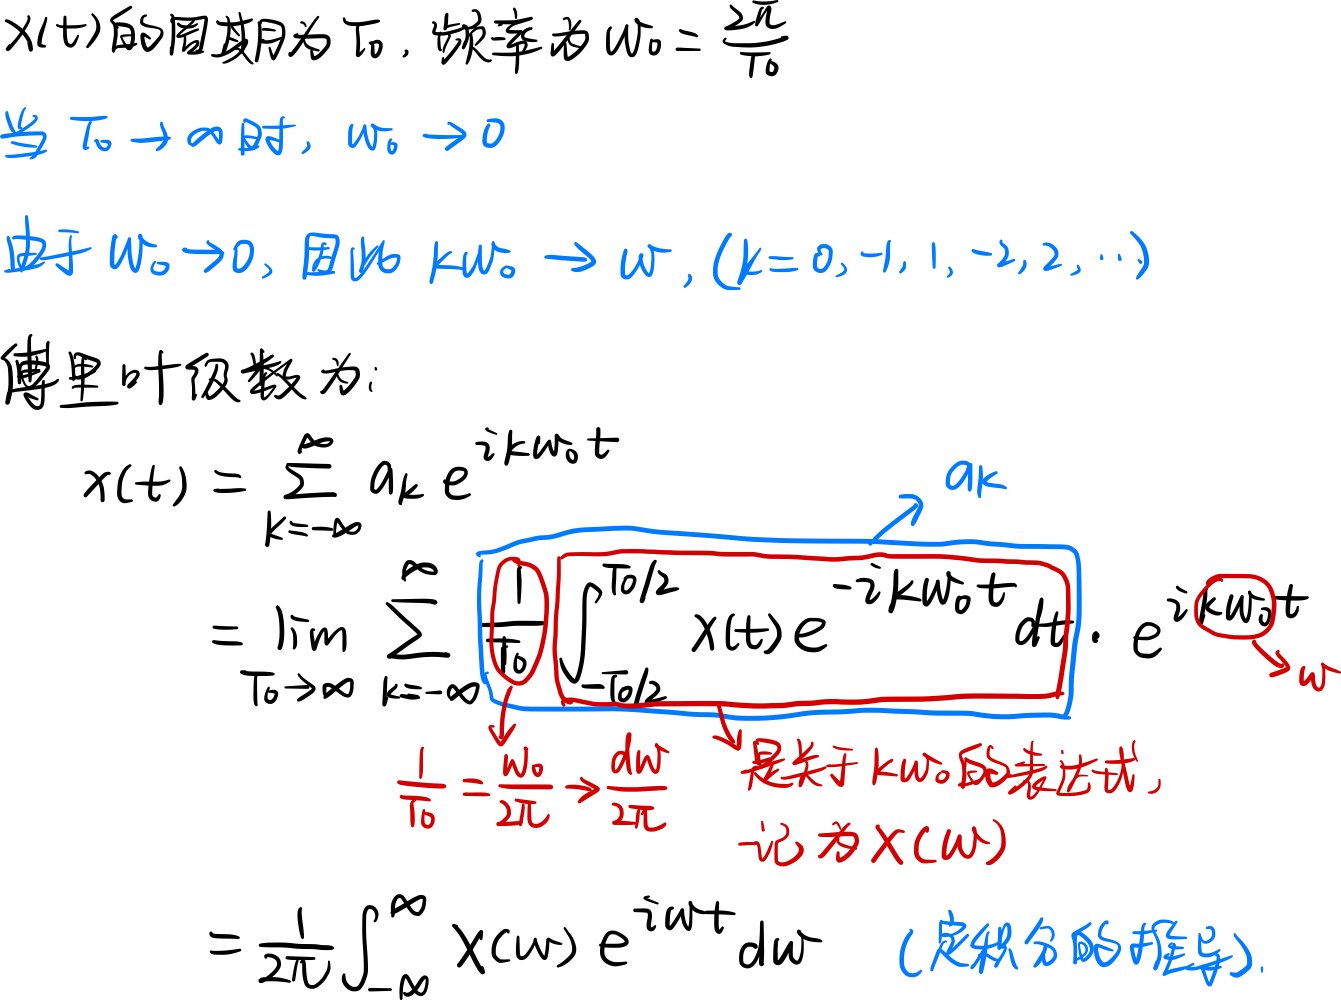 x(t)的周期为T₀, 频率为w₀ = 2π/T₀
当 T₀ → ∞ 时, w₀ → 0
由于 w₀ → 0, 因此 kw₀ → w, (k = 0, -1, 1, -2, 2, …)
傅里叶级数为:
x(t) = ∑_{k=-∞}^{∞} a_k e^{ikw₀t}
a_k
= lim_{T₀→∞} ∑_{k=-∞}^{∞} 1/T₀ ∫_{-T₀/2}^{T₀/2} x(t) e^{-ikw₀t} dt · e^{ikw₀t}
w
1/T₀ = w₀/2π → dw/2π
是关于kw₀的表达式,
记为X(w)
= 1/2π ∫_{-∞}^{∞} X(w) e^{iwt} dw (定积分的推导).